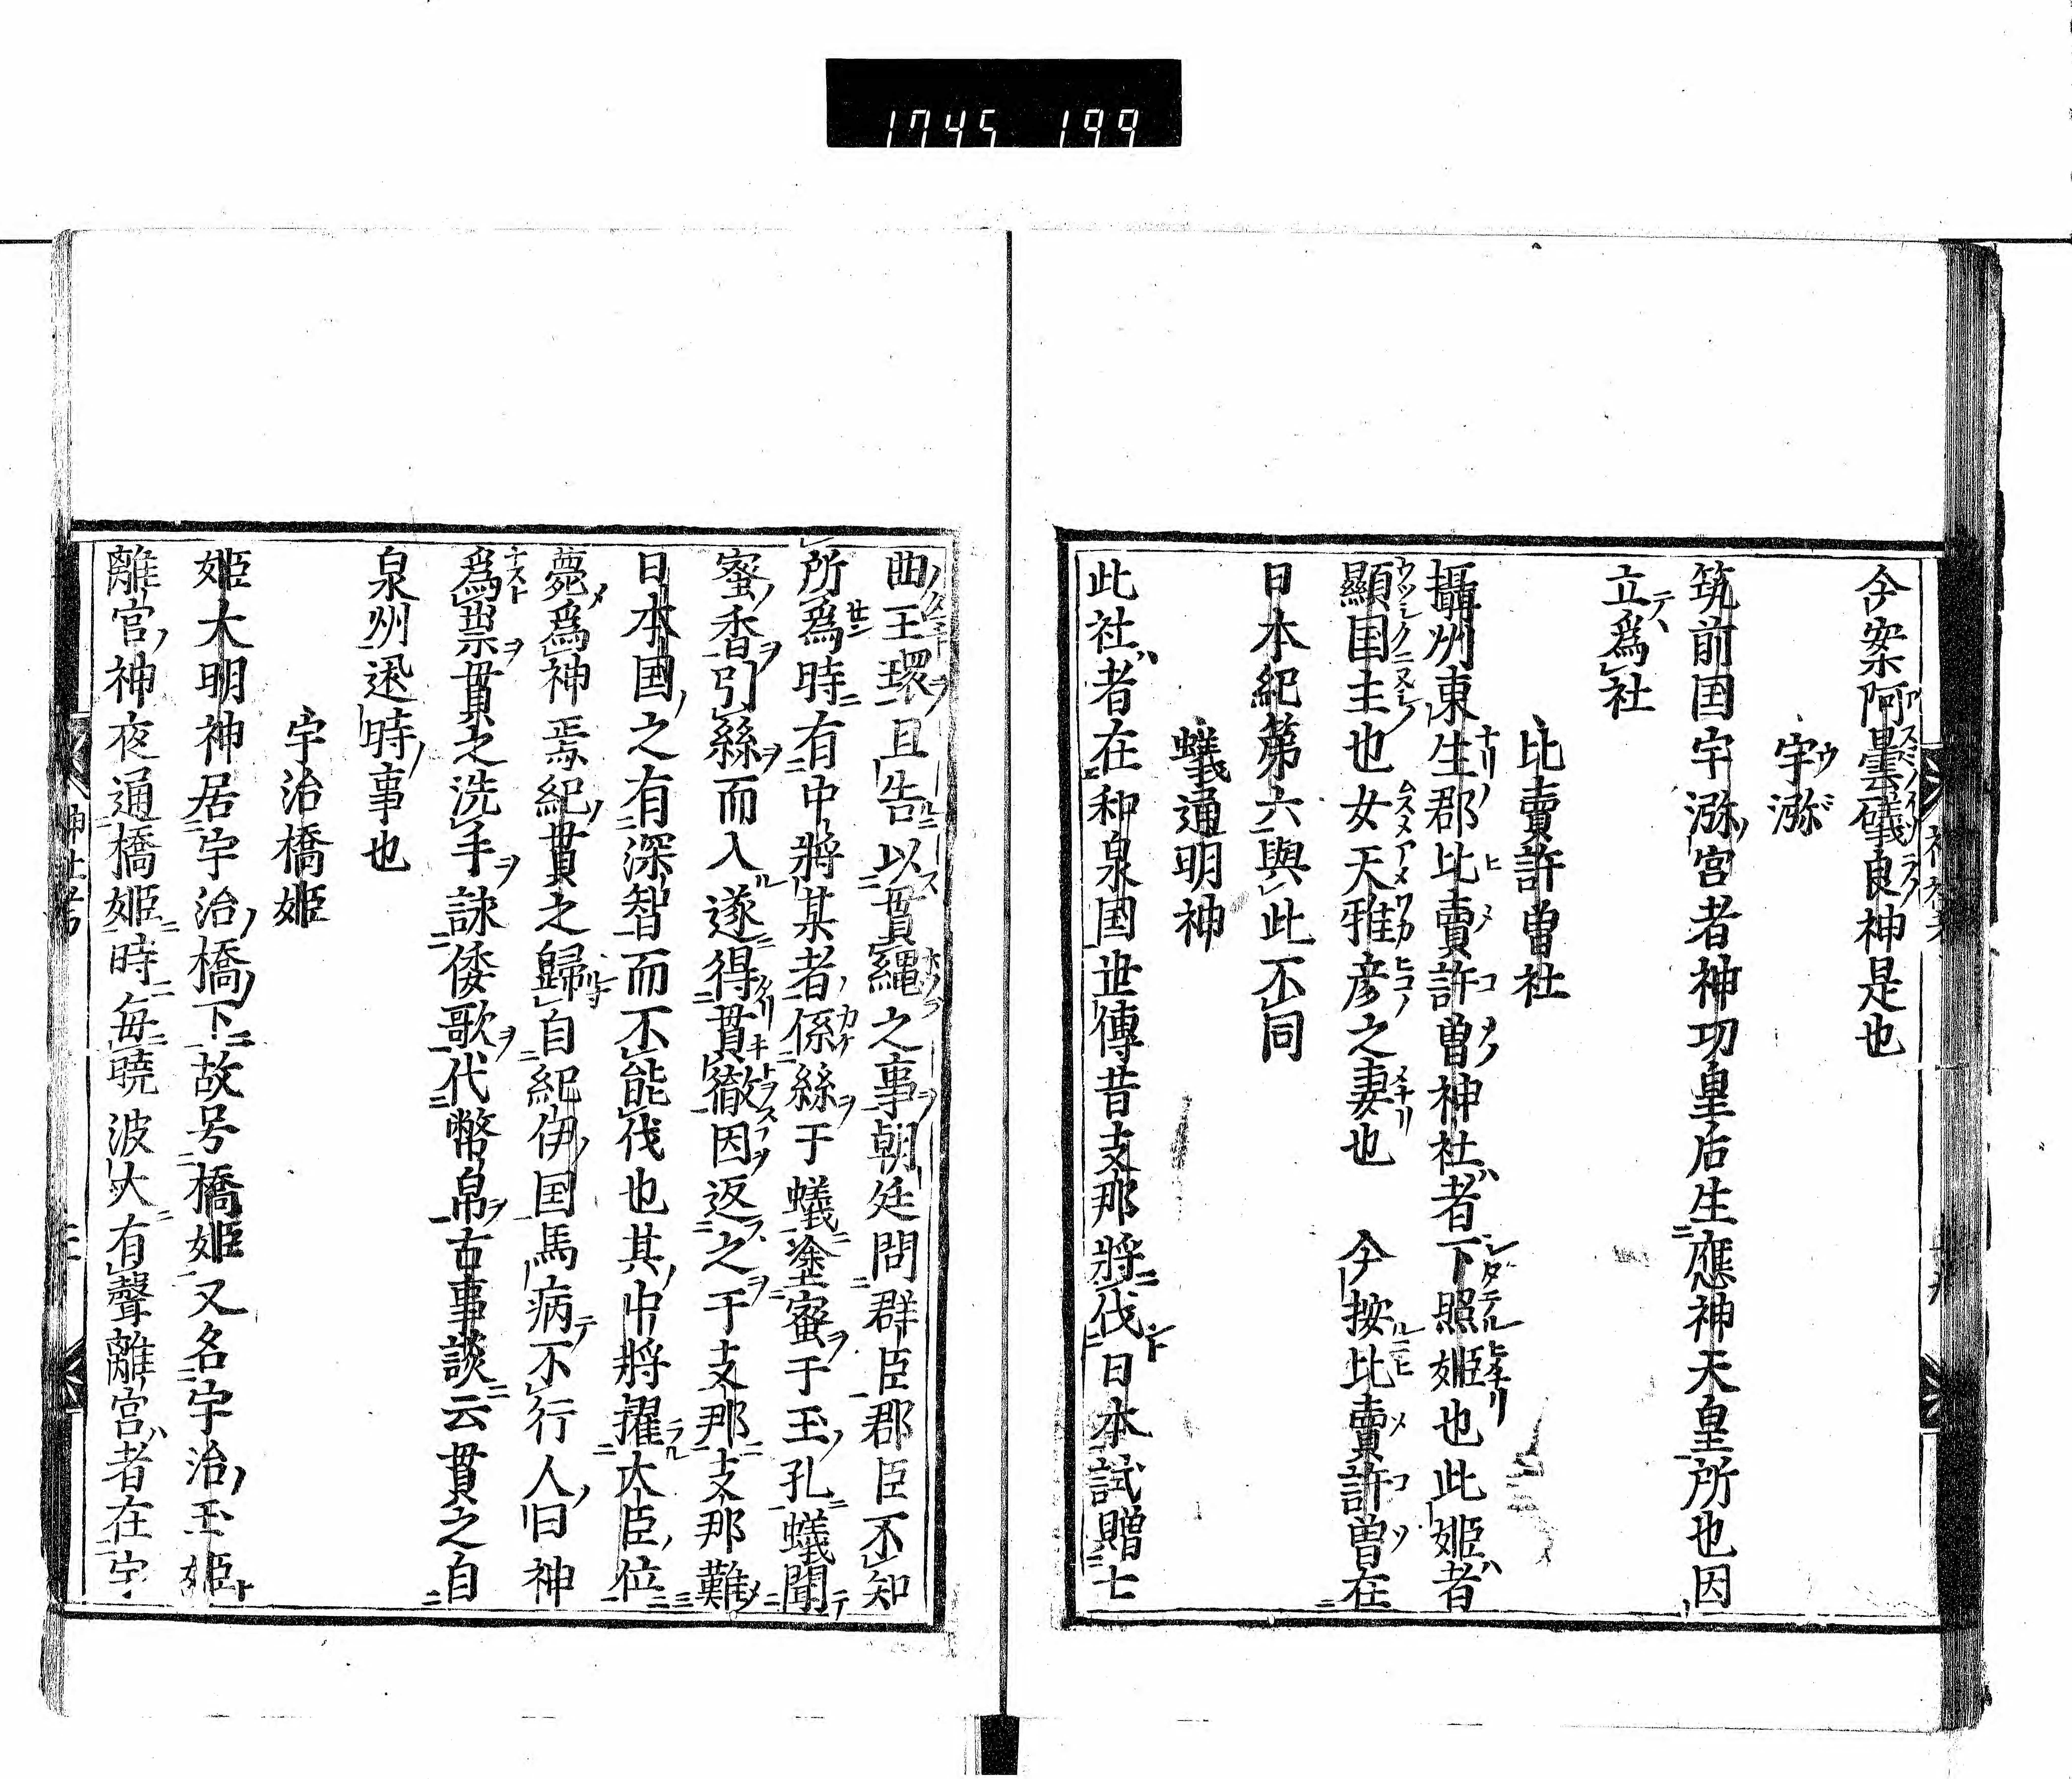 1745 199
今案阿曇礒良神是也
宇瀰
筑前国宇瀰宮者神功皇后生應神天皇所也因
立爲社
比賣許曽社
攝州東生郡比賣許曽神社者下照姫也此姫者
顯国主也女天雅彦之妻也 今按比賣許曽在
日本紀第六與此不同
蟻通明神
此社者在和泉国世傳昔支那將伐日本試贈七
曲玉環且告以貫縄之事朝廷問群臣郡臣不知
所爲時有中將某者係絲于蟻塗蜜于玉孔蟻聞
蜜香引絲而入遂得貫徹因返之于支那支那難
日本国之有深智而不能伐也其中將擢大臣位
薨爲神焉紀貫之歸自紀伊国馬病不行人曰神
爲祟貫之洗手詠倭歌代幣帛古事談云貫之自
泉州還時事也
宇治橋姫
姫大明神居宇治橋下故号橋姫又名宇治玉姫
離宮神夜通橋姫時毎曉波大有聲離宮者在宇